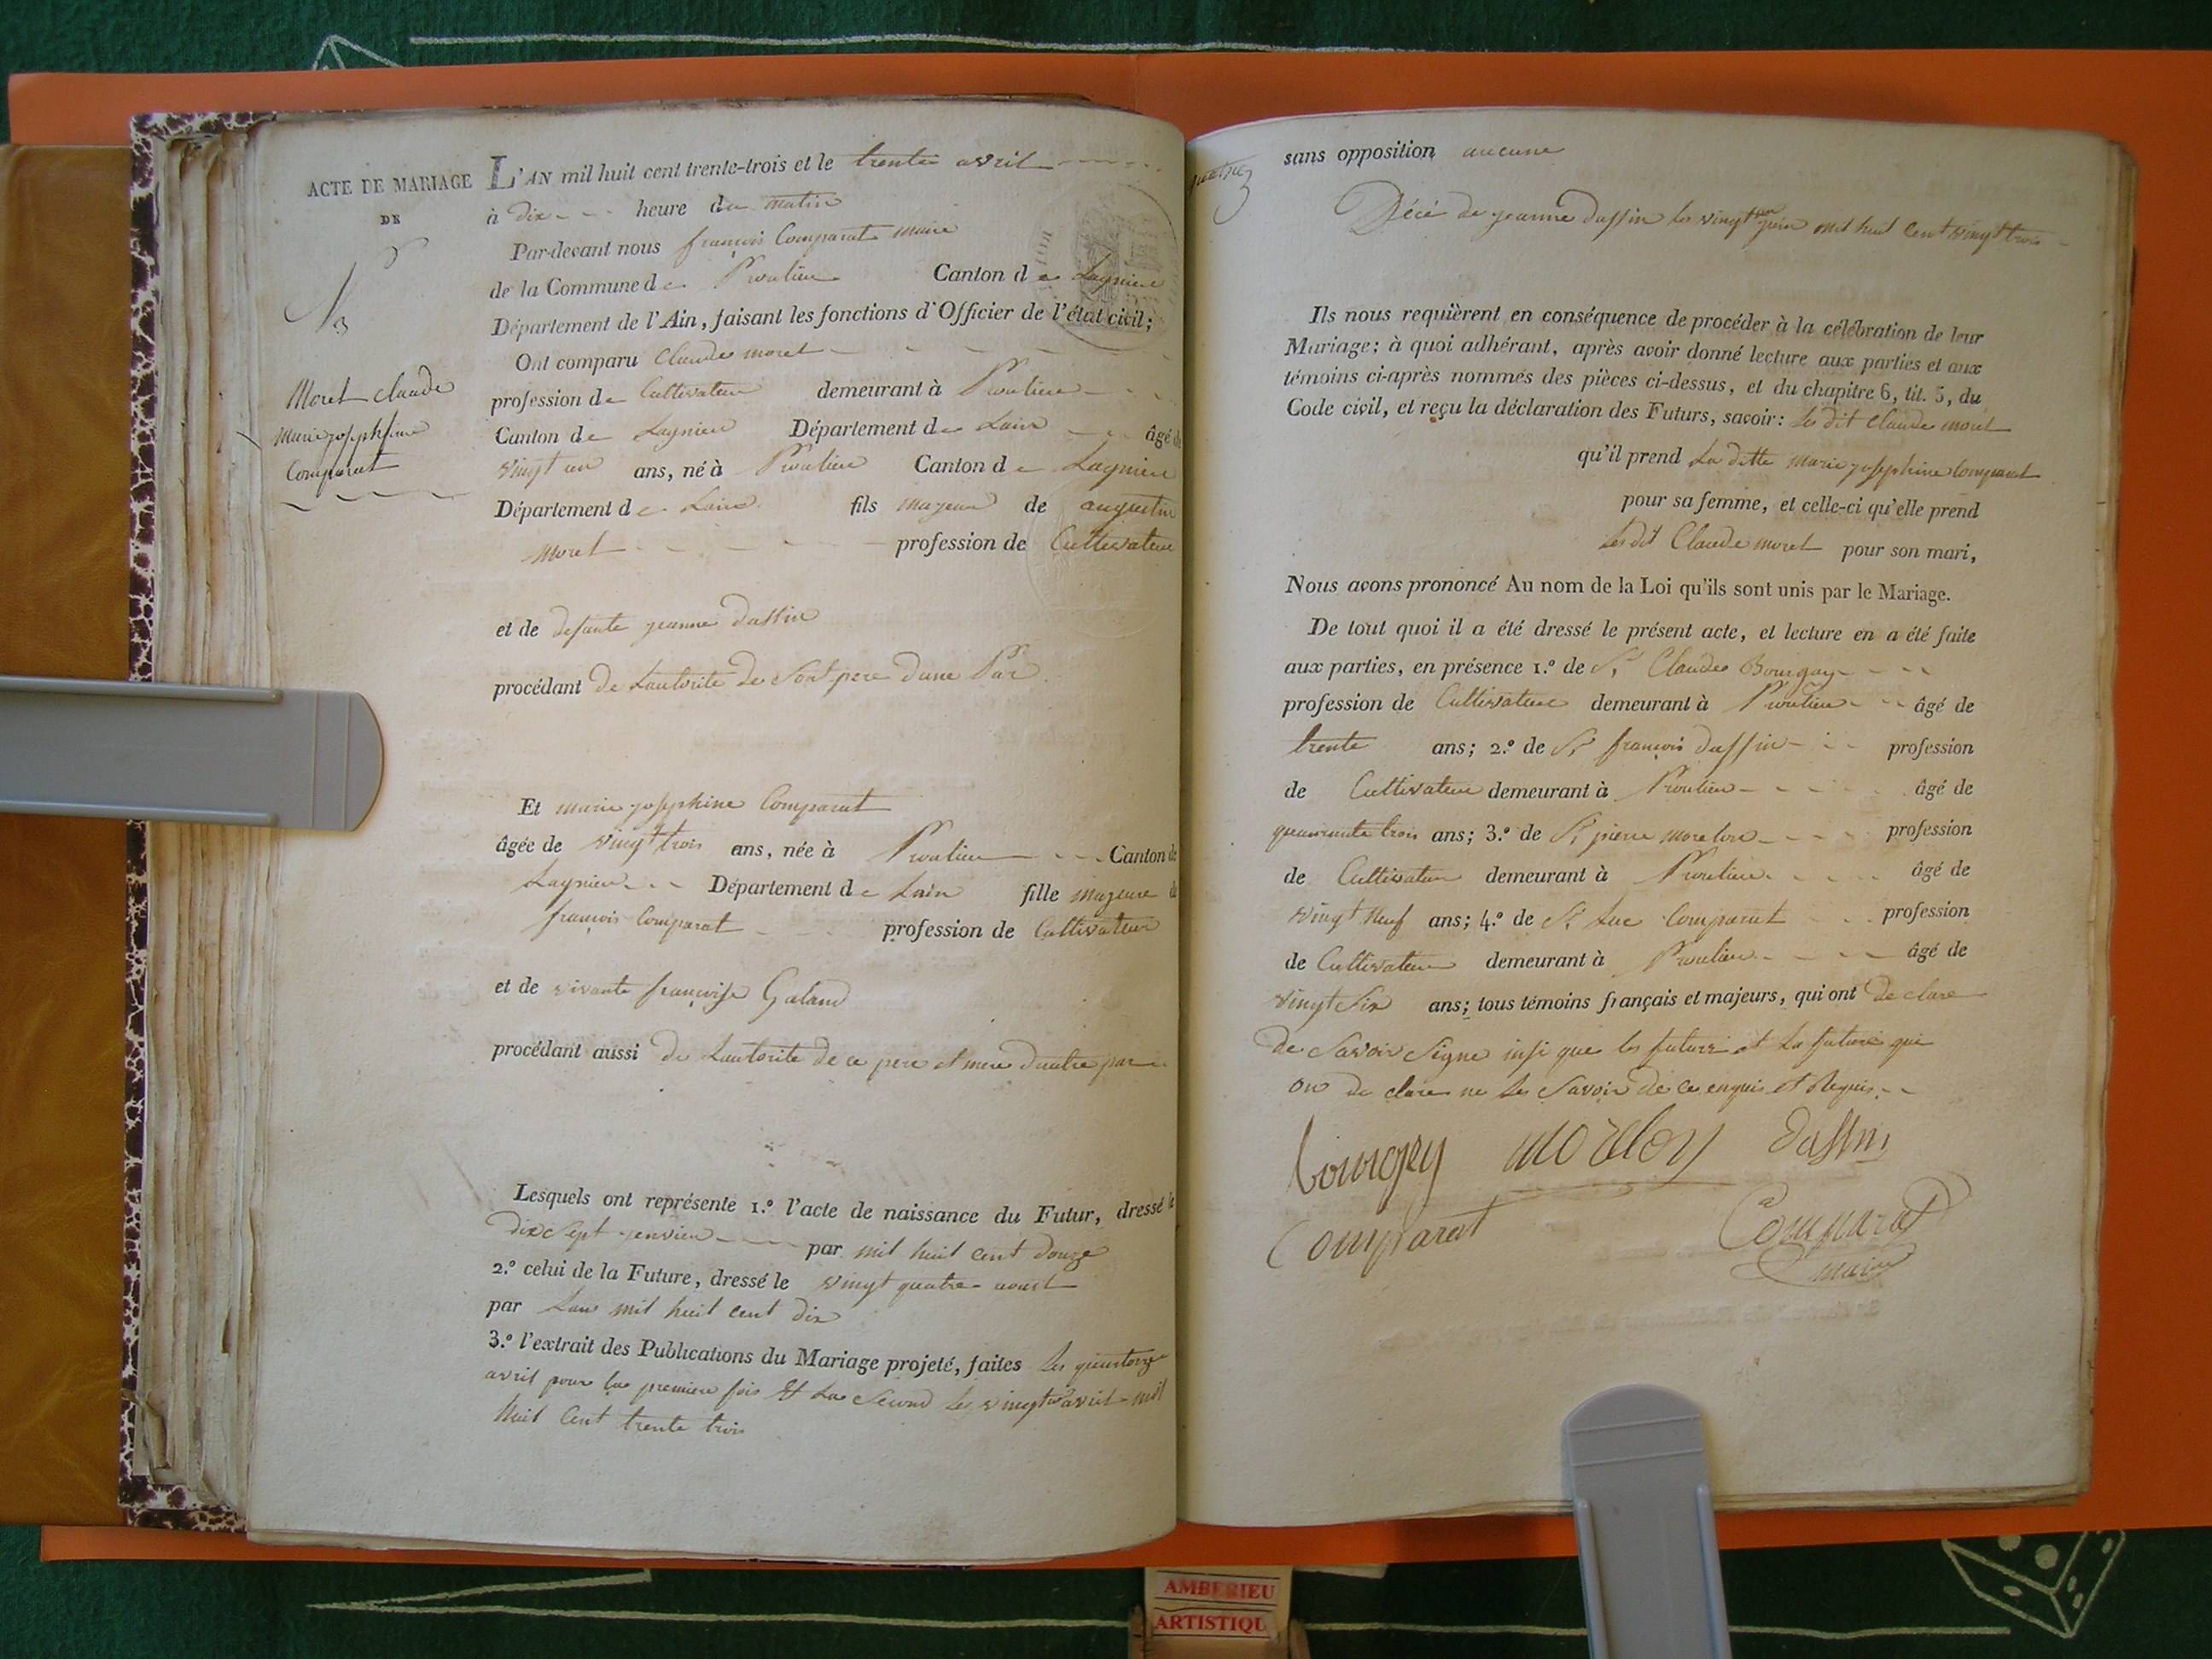 ACTE DE MARIAGE
DE
Moret claude
marie josephine
Comparat
L'AN mil huit cent trente-trois et le trente avril
à dix heure du matin
Par-devant nous françois Comparat maire
de la Commune de Proulieu Canton de Lagnieu
Département de l'Ain, faisant les fonctions d'Officier de l'état civil;
Ont comparu Claude moret
profession de Cultivateur demeurant à Proulieu
Canton de Lagnieu Département de Lain âgé de
vingt un ans, né à Proulieu Canton de Lagnieu
Département de Lain fils majeur de augustin
moret profession de Cultivateur
et de defunte jeanne dassin
procédant de Lautorite de Son pere dune Par
Et marie josephine Comparat
âgée de vingt trois ans, née à Proulieu Canton de
Lagnieu Département de Lain fille majeure de
françois Comparat profession de Cultivateur
et de vivante françoise Galand
procédant aussi de Lautorite de ce pere et mere dautre par
Lesquels ont représente 1.º l'acte de naissance du Futur, dressé le
dix Sept janvier par mil huit cent douze
2.º celui de la Future, dressé le vingt quatre aoust
par Lan mil huit cent dix
3.º l'extrait des Publications du Mariage projeté, faites Les quatorze
avril pour la premiere fois Et La Second Le vingt un avril mil
huit Cent trente trois
sans opposition aucune
Décé de jeanne dassin Le vingt un juin mil huit Cent vingt trois
Ils nous requièrent en conséquence de procéder à la célébration de leur
Mariage; à quoi adhérant, après avoir donné lecture aux parties et aux
témoins ci-après nommés des pièces ci-dessus, et du chapitre 6, tit. 5, du
Code civil, et reçu la déclaration des Futurs, savoir: Le dit Claude moret
qu'il prend La ditte marie josephine Comparat
pour sa femme, et celle-ci qu'elle prend
Le dit Claude moret pour son mari,
Nous avons prononcé Au nom de la Loi qu'ils sont unis par le Mariage.
De tout quoi il a été dressé le présent acte, et lecture en a été faite
aux parties, en présence 1.º de Sr Claude Bourgey
profession de Cultivateur demeurant à Proulieu âgé de
trente ans; 2.º de Sr françois dassin profession
de Cultivateur demeurant à Proulieu âgé de
quarrante trois ans; 3.º de Sr pierre morelon profession
de Cultivateur demeurant à Proulieu âgé de
vingt neuf ans; 4.º de Sr Luc Comparat profession
de Cultivateur demeurant à Proulieu âgé de
vingt Six ans; tous témoins français et majeurs, qui ont de clare
de Savoir Signe insi que les futurs et La future que
on de clare ne Les Savoir de ce enquis et Requis
bourgey morelon dassin
Comparat Comparat
maire
AMBERIEU
ARTISTIQU